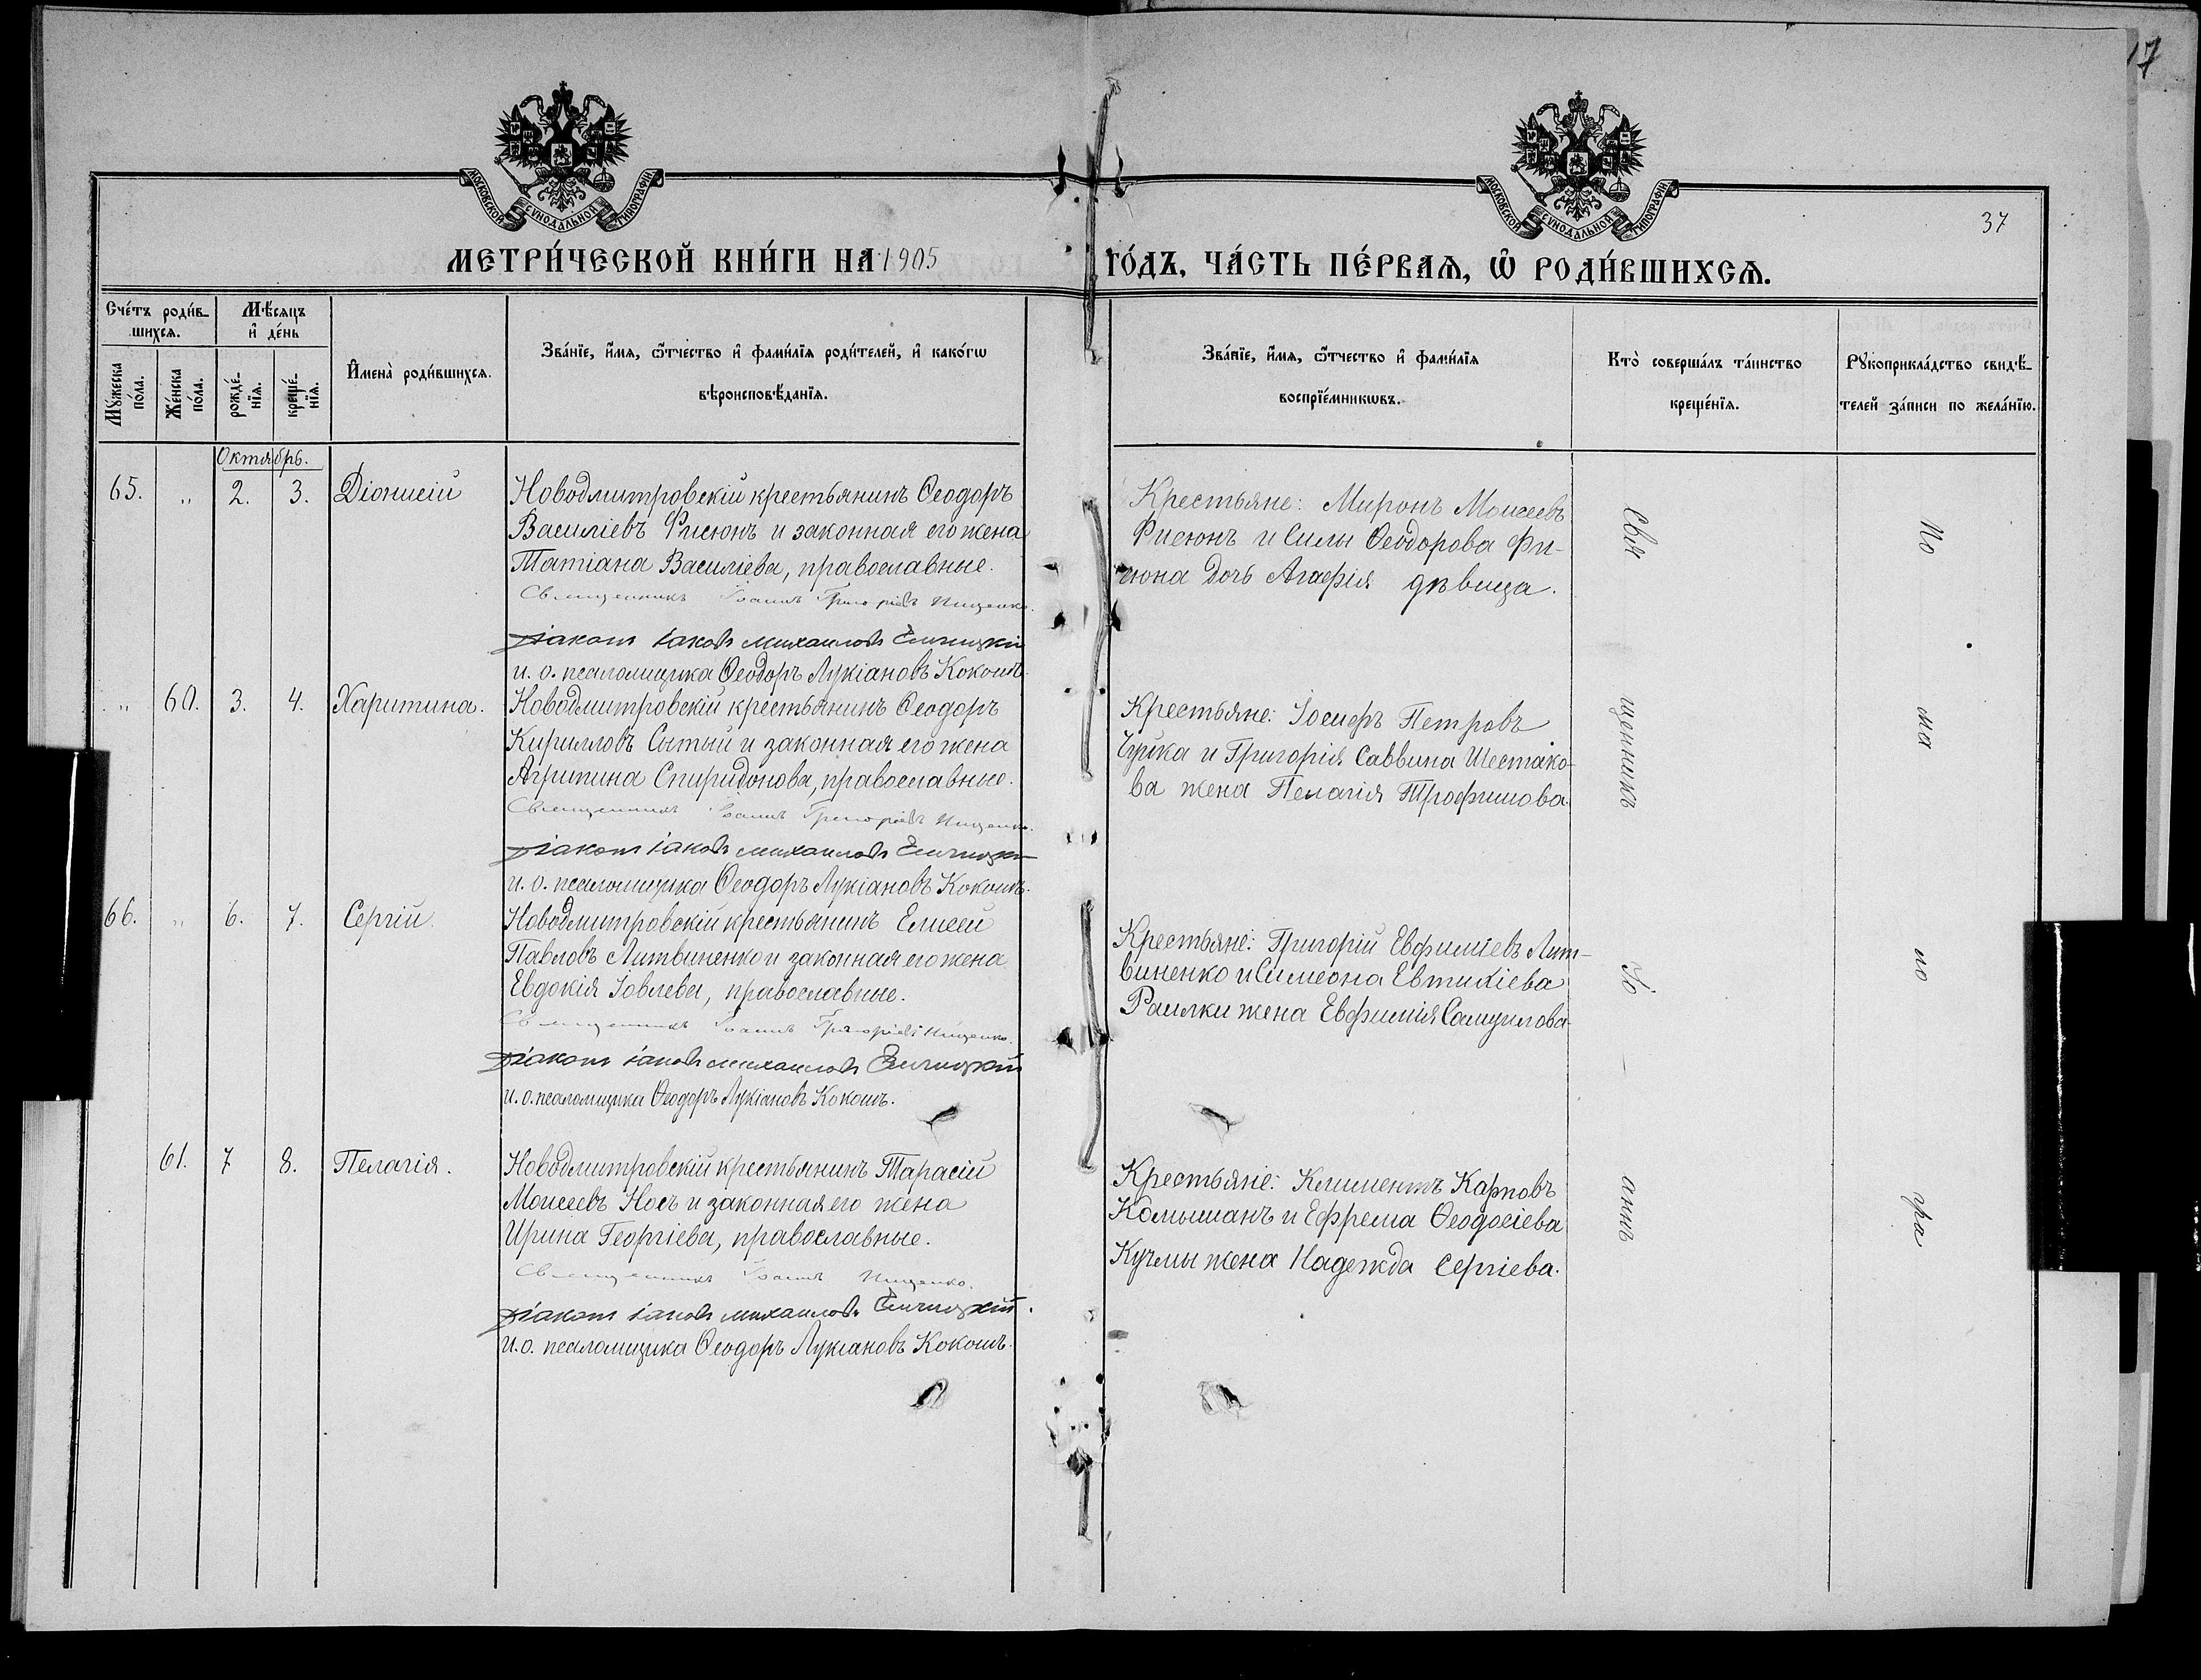 17
МОСКОВСКОЙ СѴНОДАЛЬНОЙ ТИПОГРАФІИ
МОСКОВСКОЙ СѴНОДАЛЬНОЙ ТИПОГРАФІИ
37
МЕТРИ́ЧЕСКОЙ КНИ́ГИ НА 1905 ГО́ДЪ, ЧА́СТЬ ПЕ́РВАѦ, Ѡ҆ РОДИ́ВШИХСѦ.
Сче́тъ роди́в-
шихсѧ.
Мꙋ́жеска по́ла.
Же́нска по́ла.
Мѣ́сѧцъ
и҆ де́нь
рожде́-
нїѧ.
креще́-
нїѧ.
И҆мена̀ роди́вшихсѧ.
Зва́нїе, и҆́мѧ, ѻ҆́тчество и҆ фами́лїѧ роди́телей, и҆ како́гѡ
вѣроисповѣ́данїѧ.
Зва́нїе, и҆́мѧ, ѻ҆́тчество и҆ фами́лїѧ
воспрїе́мникѡвъ.
Кто̀ соверша́лъ та́инство
креще́нїѧ.
Рꙋкоприкла́дство свидѣ́-
телей за́писи по жела́нїю.
Октябрь.
65. „ 2. 3. Діонисій
Новодмитровскій крестьянинъ Ѳеодоръ
Василіевъ Фисюнъ и законная его жена
Татіана Василіева, православные.
Священникъ Іоаннъ Григоріевъ Нищенко.
Діаконъ Іаковъ Михаиловъ
и. о. псаломщика Ѳеодоръ Лукіановъ Кокошъ.
Крестьяне: Миронъ Моисеевъ
Фисюнъ и Силы Ѳеодорова Фи-
сюна дочь Агафія дѣвица.
„ 60. 3. 4. Харитина.
Новодмитровскій крестьянинъ Ѳеодоръ
Кирилловъ Сытый и законная его жена
Агрипина Спиридонова, православные.
Священникъ Іоаннъ Григоріевъ Нищенко.
Діаконъ Іаковъ Михаиловъ
и. о. псаломщика Ѳеодоръ Лукіановъ Кокошъ.
Крестьяне: Іосифъ Петровъ
Чуйка и Григорія Саввина Шестако-
ва жена Пелагія Трофимова.
66. „ 6. 7. Сергій.
Новодмитровскій крестьянинъ Елисей
Павловъ Литвиненко и законная его жена
Евдокія Іовлева, православные.
Священникъ Іоаннъ Григоріевъ Нищенко.
Діаконъ Іаковъ Михаиловъ
и. о. псаломщика Ѳеодоръ Лукіановъ Кокошъ.
Крестьяне: Григорій Евфиміевъ Лит-
виненко и Симеона Евтихіева
Раилки жена Евфимія Самуилова.
61. 7 8. Пелагія.
Новодмитровскій крестьянинъ Тарасій
Моисеевъ Носъ и законная его жена
Ирина Георгіева, православные.
Священникъ Іоаннъ Нищенко.
Діаконъ Іаковъ Михаиловъ
и. о. псаломщика Ѳеодоръ Лукіановъ Кокошъ.
Крестьяне: Климентъ Карповъ
Комышанъ и Ефрема Ѳеодосіева
Кучмы жена Надежда Сергіева.
Свя
щенникъ
Іо –
аннъ
По
ма
но
гра